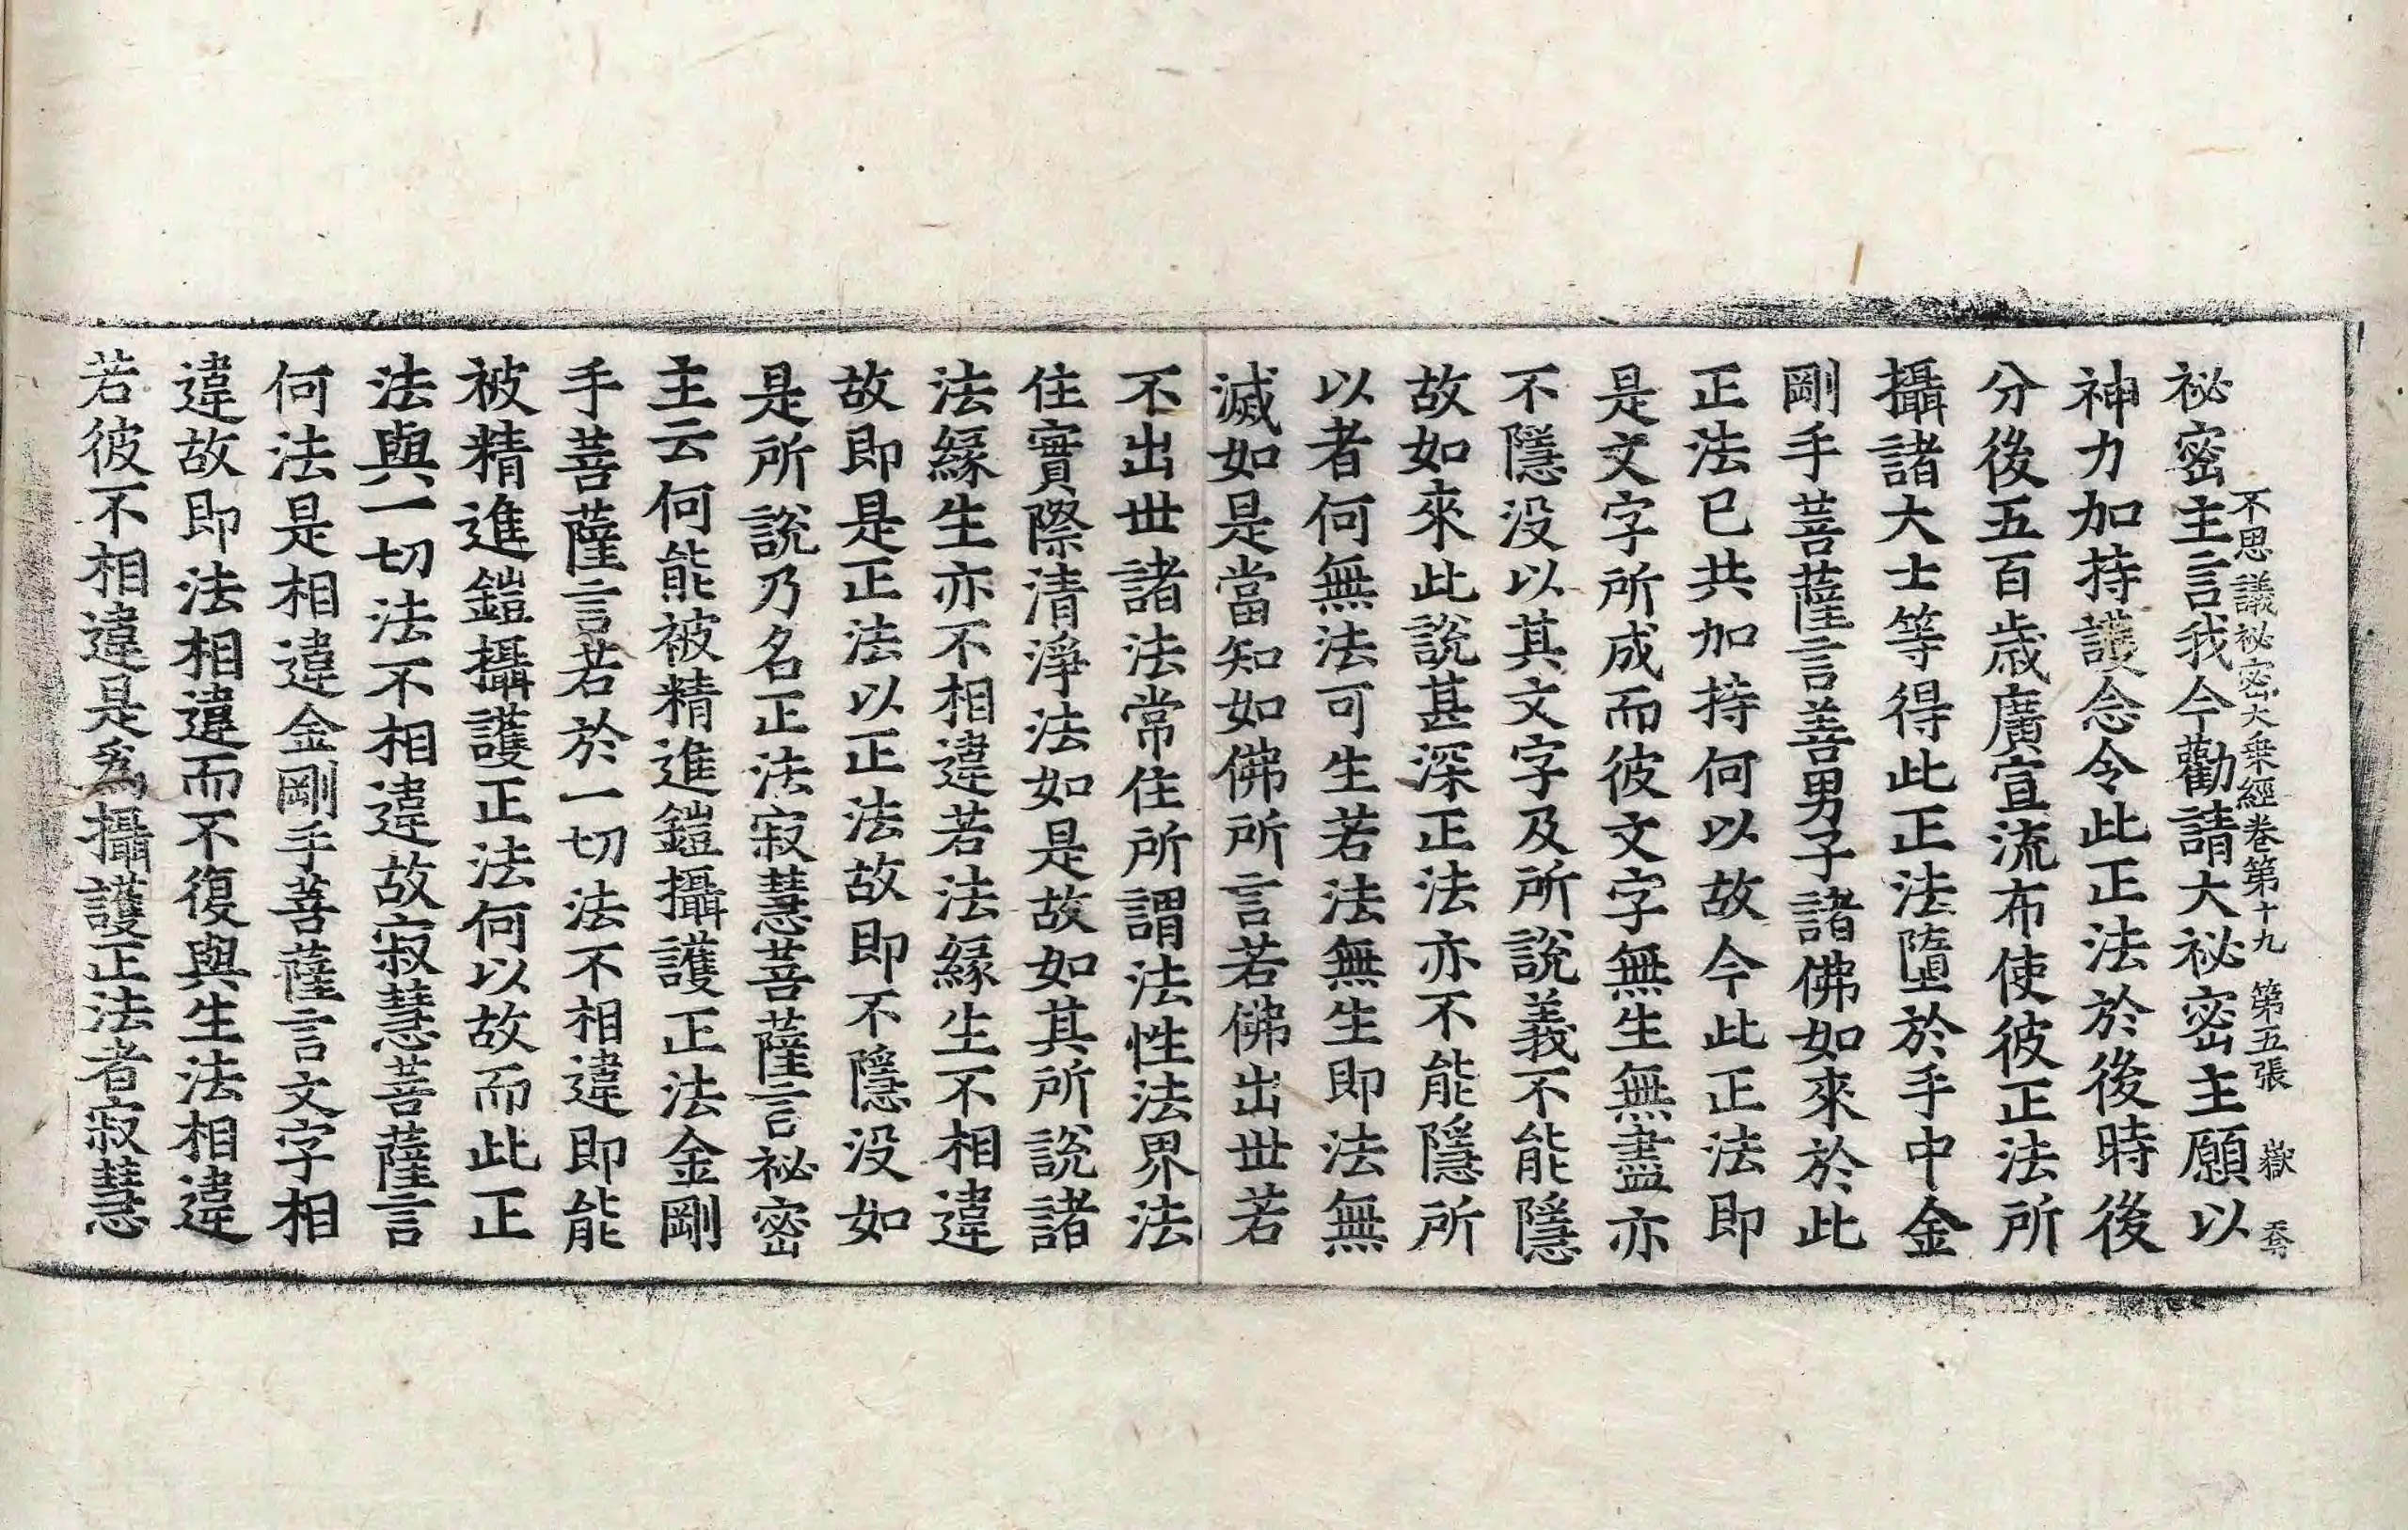 不思議祕密大乘經卷第十九 第五張 嶽
祕密主言我今勸請大祕密主願以
神力加持護念令此正法於後時後
分後五百歲廣宣流布使彼正法所
攝諸大士等得此正法墮於手中金
剛手菩薩言善男子諸佛如來於此
正法已共加持何以故今此正法即
是文字所成而彼文字無生無盡亦
不隱没以其文字及所說義不能隱
故如來此說甚深正法亦不能隱所
以者何無法可生若法無生即法無
滅如是當知如佛所言若佛出世若
不出世諸法常住所謂法性法界法
住實際清淨法如是故如其所說諸
法緣生亦不相違若法緣生不相違
故即是正法以正法故即不隱没如
是所說乃名正法寂慧菩薩言祕密
主云何能被精進鎧攝護正法金剛
手菩薩言若於一切法不相違即能
被精進鎧攝護正法何以故而此正
法與一切法不相違故寂慧菩薩言
何法是相違金剛手菩薩言文字相
違故即法相違而不復與生法相違
若彼不相違是爲攝護正法者寂慧